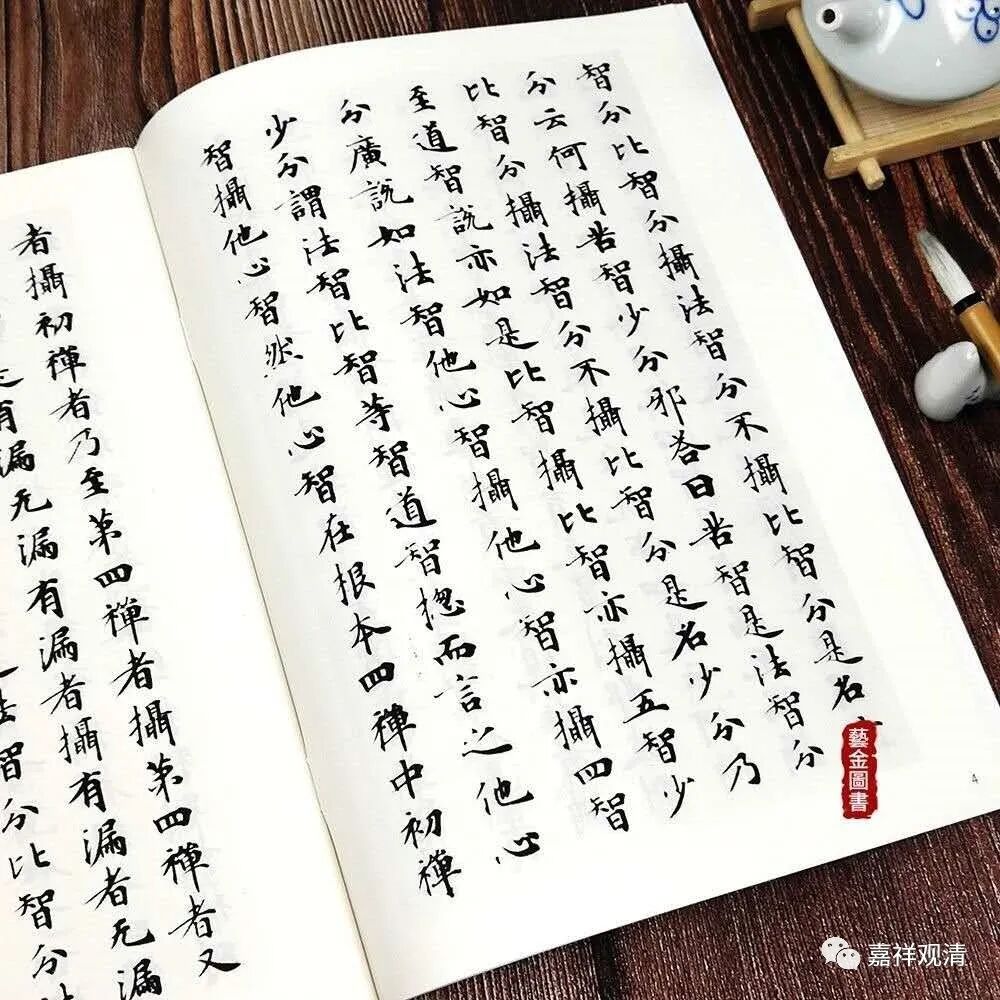 智分比智分攝法智分不攝比智分是名
分云何攝苦智少分邪答曰苦智是法智分
比智分攝法智分不攝比智分是名少分乃
至道智說亦如是比智攝比智亦攝五智少
分廣說如法智他心智攝他心智亦攝四智
少分謂法智比智等智道智揔而言之他心
智攝他心智然他心智在根本四禪中初禪
者攝初禪者乃至第四禪者攝第四禪者又
有漏无漏有漏者攝有漏者无漏
智分比智分
藝金圖書
4
嘉祥观清